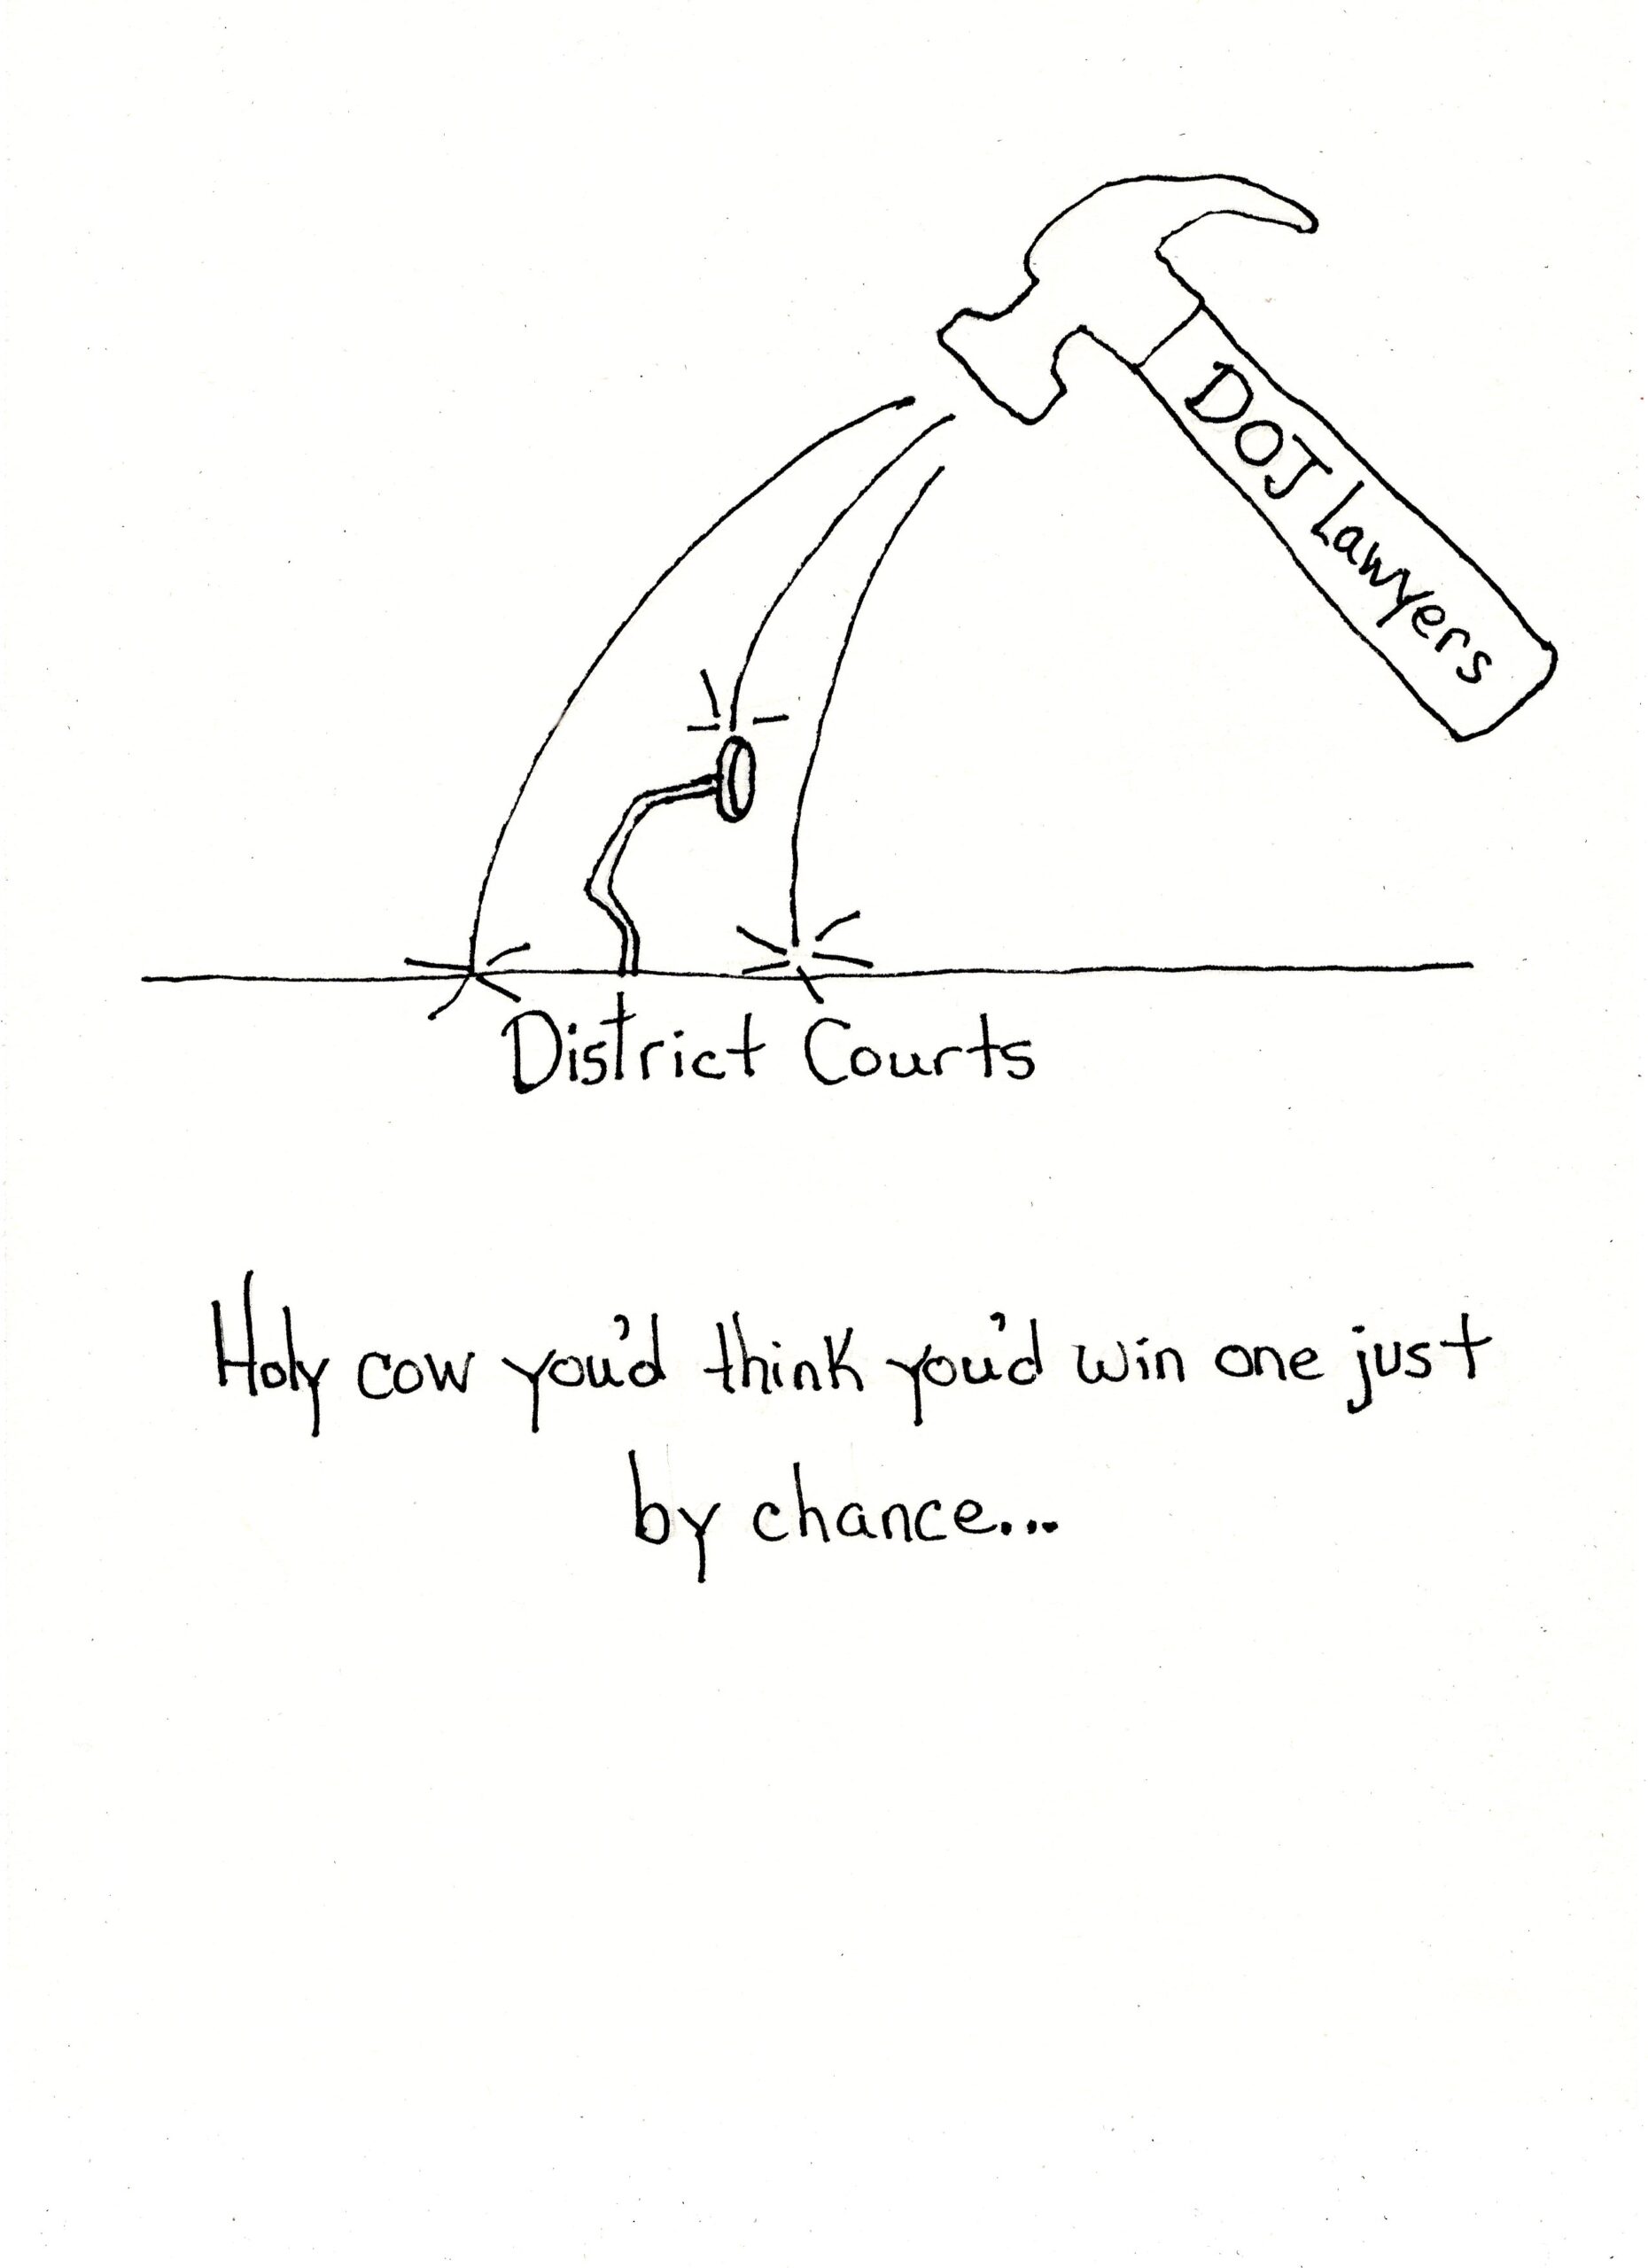 DOJ Lawyers
District Courts
Holy cow you'd think you'd win one just
by chance...